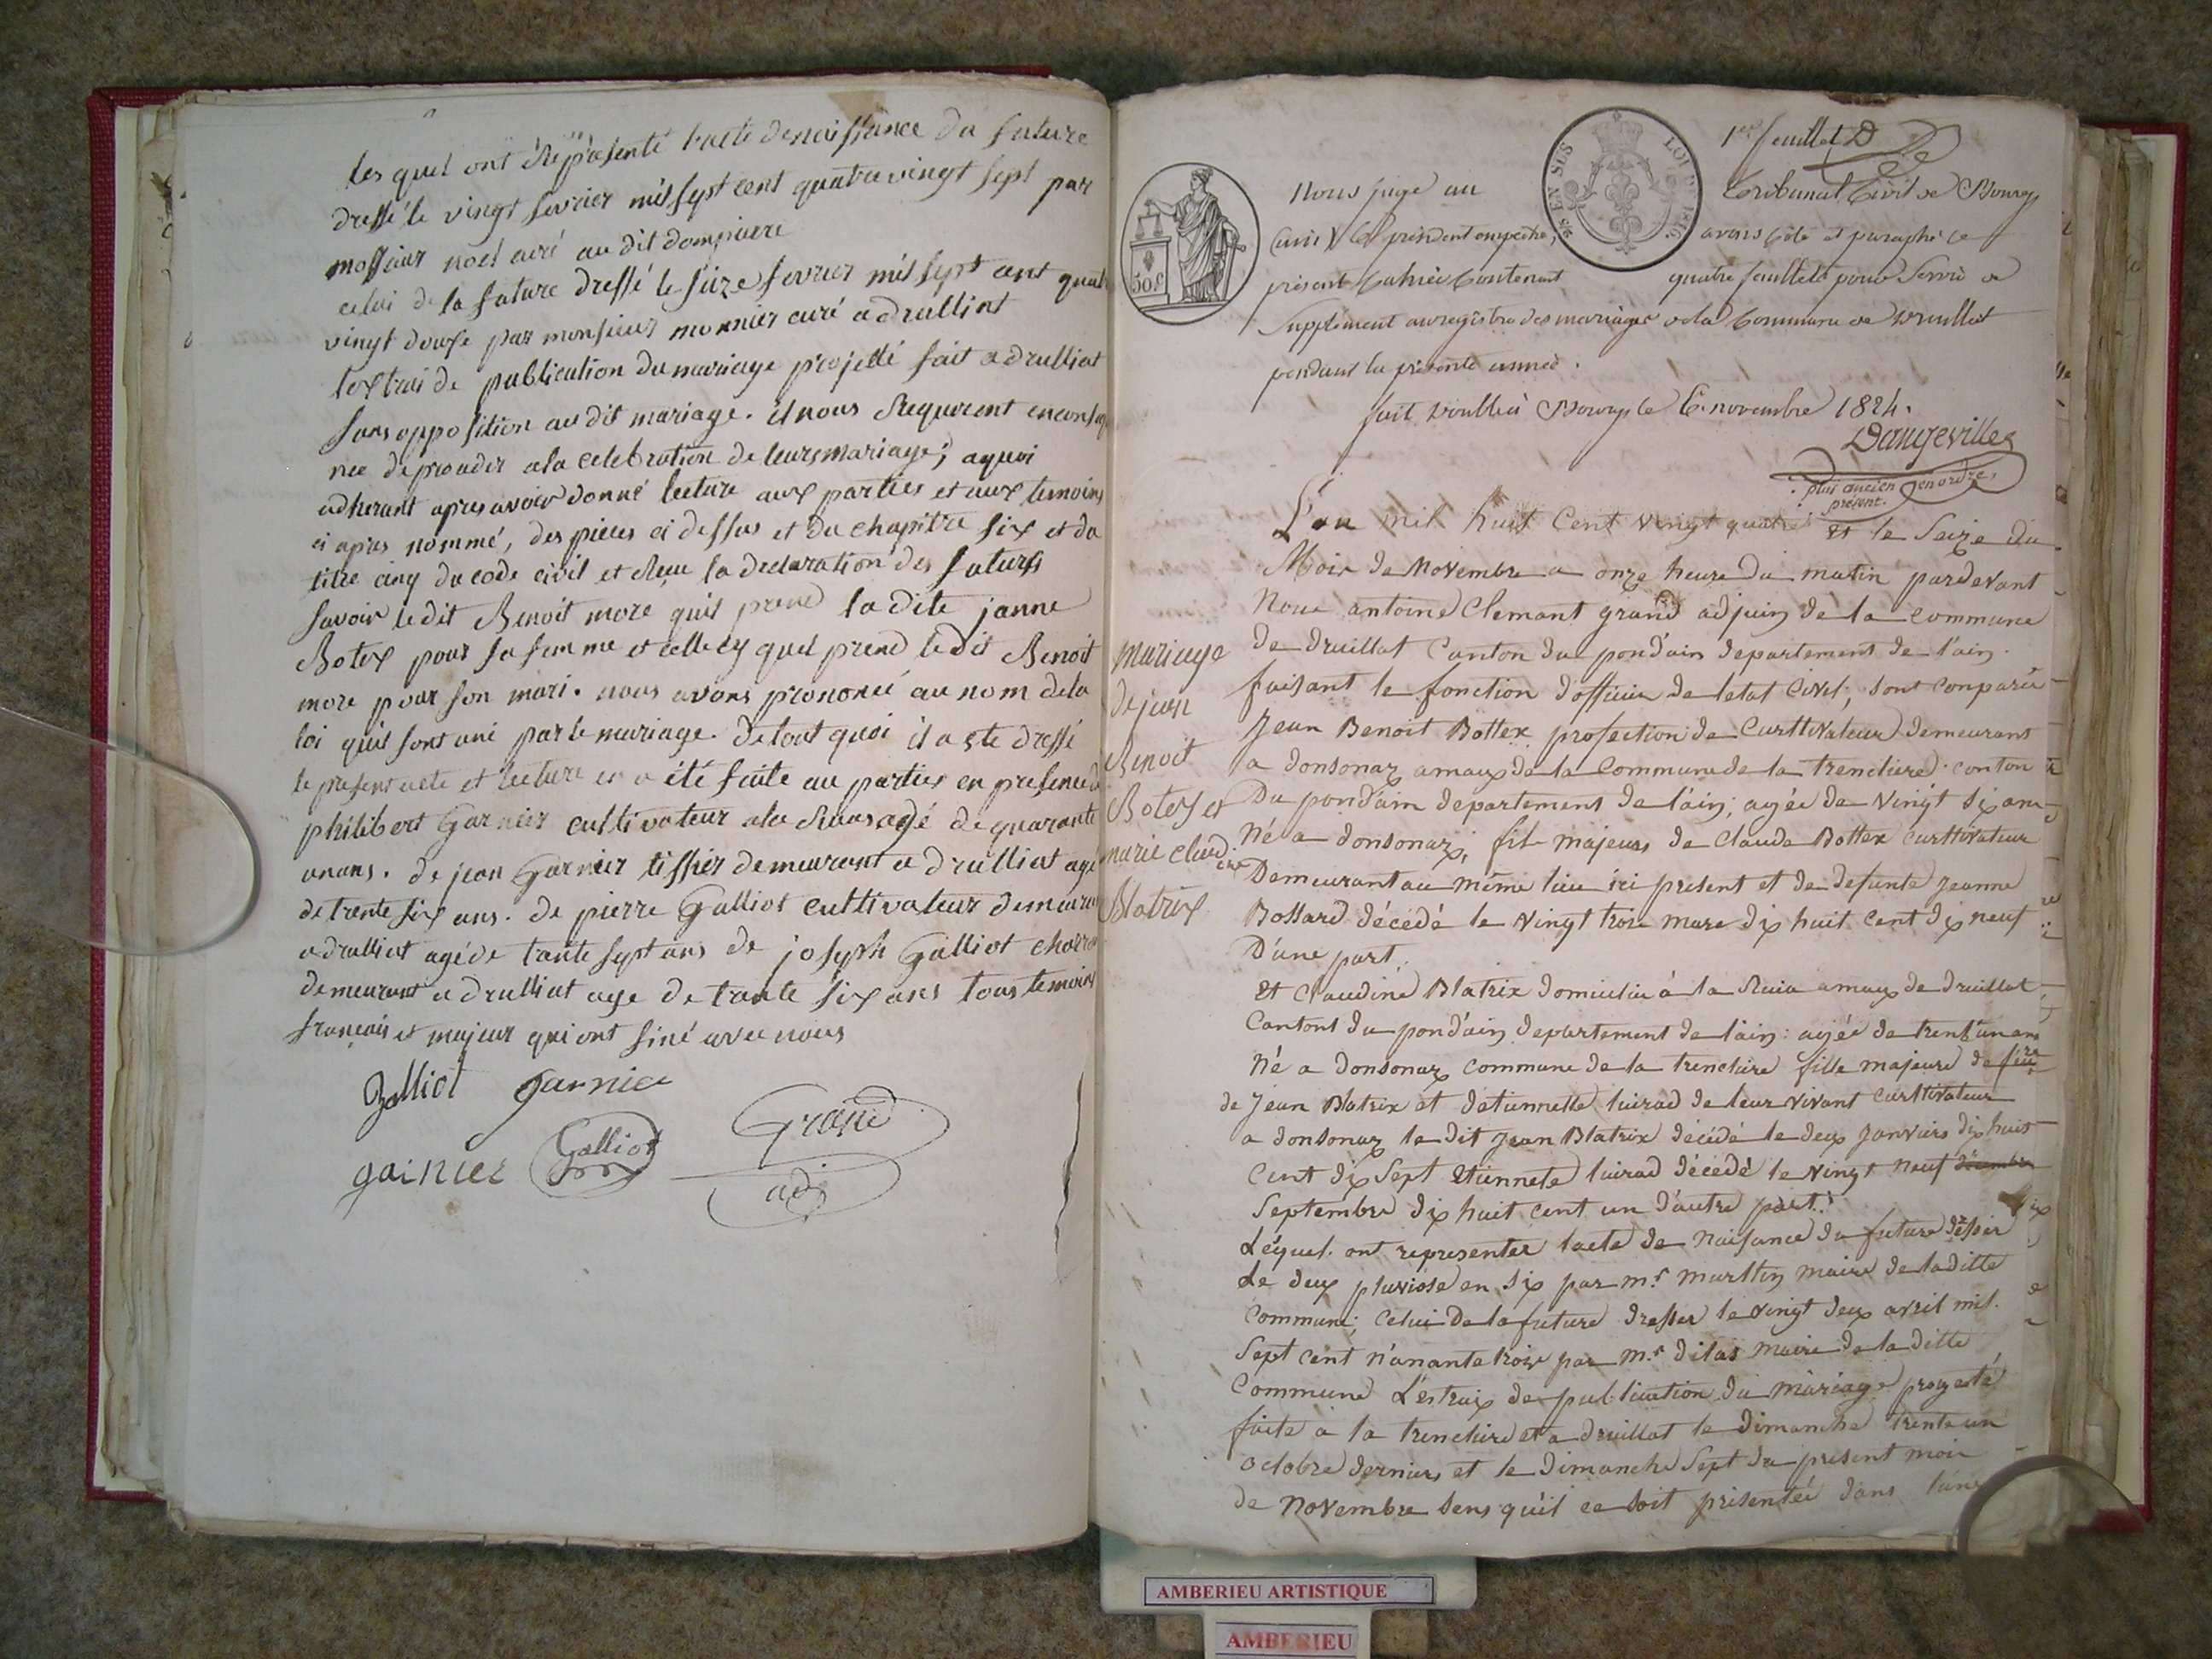 les quel ont Représenté l'acte de naissance du future
dressé le vingt fevrier mil sept cent quatre vingt sept par
mossieur noel curé au dit dompierre
celui de la future dressé le seize fevrier mil sept cent quat
vingt douze par monsieur monnier curé a drulliat
lextrai de publication du mariage projetté fait a drulliat
sans opposition au dit mariage. il nous Requirent en conseq
nce de proceder a la celebration de leurs mariage; aquoi
adherant apres avoir donné lecture aux parties et aux temoins
ci apres nommé, des pieces ci dessus et du chapitre six et du
titre cinq du code civil et Reçu la declaration des futurs
savoir le dit Benoit more quil prend la dite janne
Botex pour sa femme et celle cy quel prend le dit Benoit
more pour son mari. nous avons prononcé au nom de la
loi quil sont uni par le mariage. de tout quoi il a ete dressé
le present acte et lecture en a été faite au parties en presence d
philibert Garnier cultivateur a la Ruaz agé de quarante
un ans. de jean Garnier tissier demeurant a drulliat agé
de trente six ans. de pierre Galliot cultivateur demeuran
a drulliat agé de trante sept ans de joseph Galliot
demeurant a drulliat age de trante six ans tous temoins
francais et majeur qui ont siné avec nous
Galliot Garnier
garnier Galliot Grand
adj
1er feuillet D
Nous juge au Tribunal Civil de Bourg
président empeché, avons coté et paraphé ce
présent Cahier Contenant quatre feuillets pour Servir de
Supplément au registre des mariages de la Commune de Druillat
pendant la présente année.
fait Bourg le 6 novembre 1824.
Dangeville
plus ancien en ordre,
présent.
50 C
LOI D 1816
L'an mil huit Cent Vingt quatre et le Seize du
Mois de Novembre a onze heure du matin pardevant
Nous antoine Clemant grand adjuin de la commune
de druillat Canton du pondain departement de l'ain.
faisant le fonction d'officier de letat Civil, Sont comparu
Jean Benoit Bottex profection de Curttivateur demeurant
a donsonaz amaux de la Commune de la trencliere conton
Du pondain departement de l'ain; agée de Vingt Six ans
Né a donsonaz, fil majeurs de Claude Bottex Curttivateur
Demeurant au même lieu ici present et de defunte Jeanne
Bossard décédé le Vingt trois mars dix huit Cent dix neuf
D'une part.
Et Claudine Blatrix domicilié à la Ruia amaux de druillat
Cantont du pond'ain departement de l'ain: agée de trent'un ans
Né a donsonaz commune de la trencliere fille majeure de feu
de Jean Blatrix et detiennette luirad de leur vivant Curttivateur
a donsonaz le dit Jean Blatrix décédé le deux Janviers dix huit
Cent dix Sept Etiennete luirad décédé le Vingt neuf decembre
Septembre dix huit cent un d'autre part.
Léquel ont representer lacte de Naisance du future desser
Le deux pluviose en Six par mr. marttin maire de laditte
Commune; Celui de la future dresser le Vingt deux avril mil.
Sept cent n'anante trois par mr. dilas maire de la ditte
Commune L'estraix de publication du màriage proyeté
faite a la trencliere et a druillat le dimanche trente un
octobre derniers et le dimanche Sept du present mois
de Novembre sens quil ce soit présentée dans l'une
mariage
de jean
Benoit
Botex et
marie claud
ine
Blatrix
AMBERIEU ARTISTIQUE
AMBERIEU